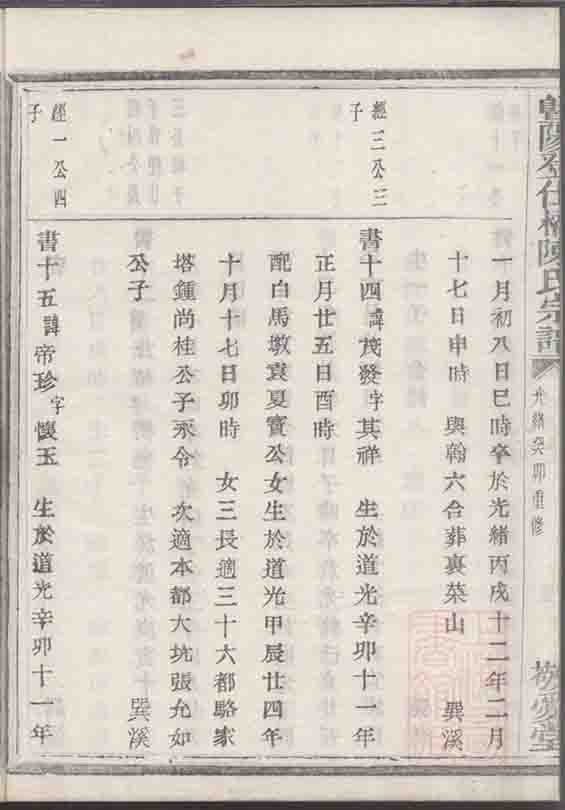 暨陽丞仕橋陳氏宗譜 光緒癸卯重修 敬愛堂
一月初八日巳時卒於光緒丙戌十二年二月
十七日申時 與翰六合葬裏菜山 巽溪
經三公三
子
書十四諱茂發字其祥 生於道光辛卯十一年
正月廿五日酉時
配白馬墩袁夏寶公女生於道光甲辰廿四年
十月十七日卯時 女三長適三十六都駱家
塔鍾尚桂公子永令 次適本都大坑張允如
公子 巽溪
經一公四
子
書十五諱帝珍字懷玉 生於道光辛卯十一年